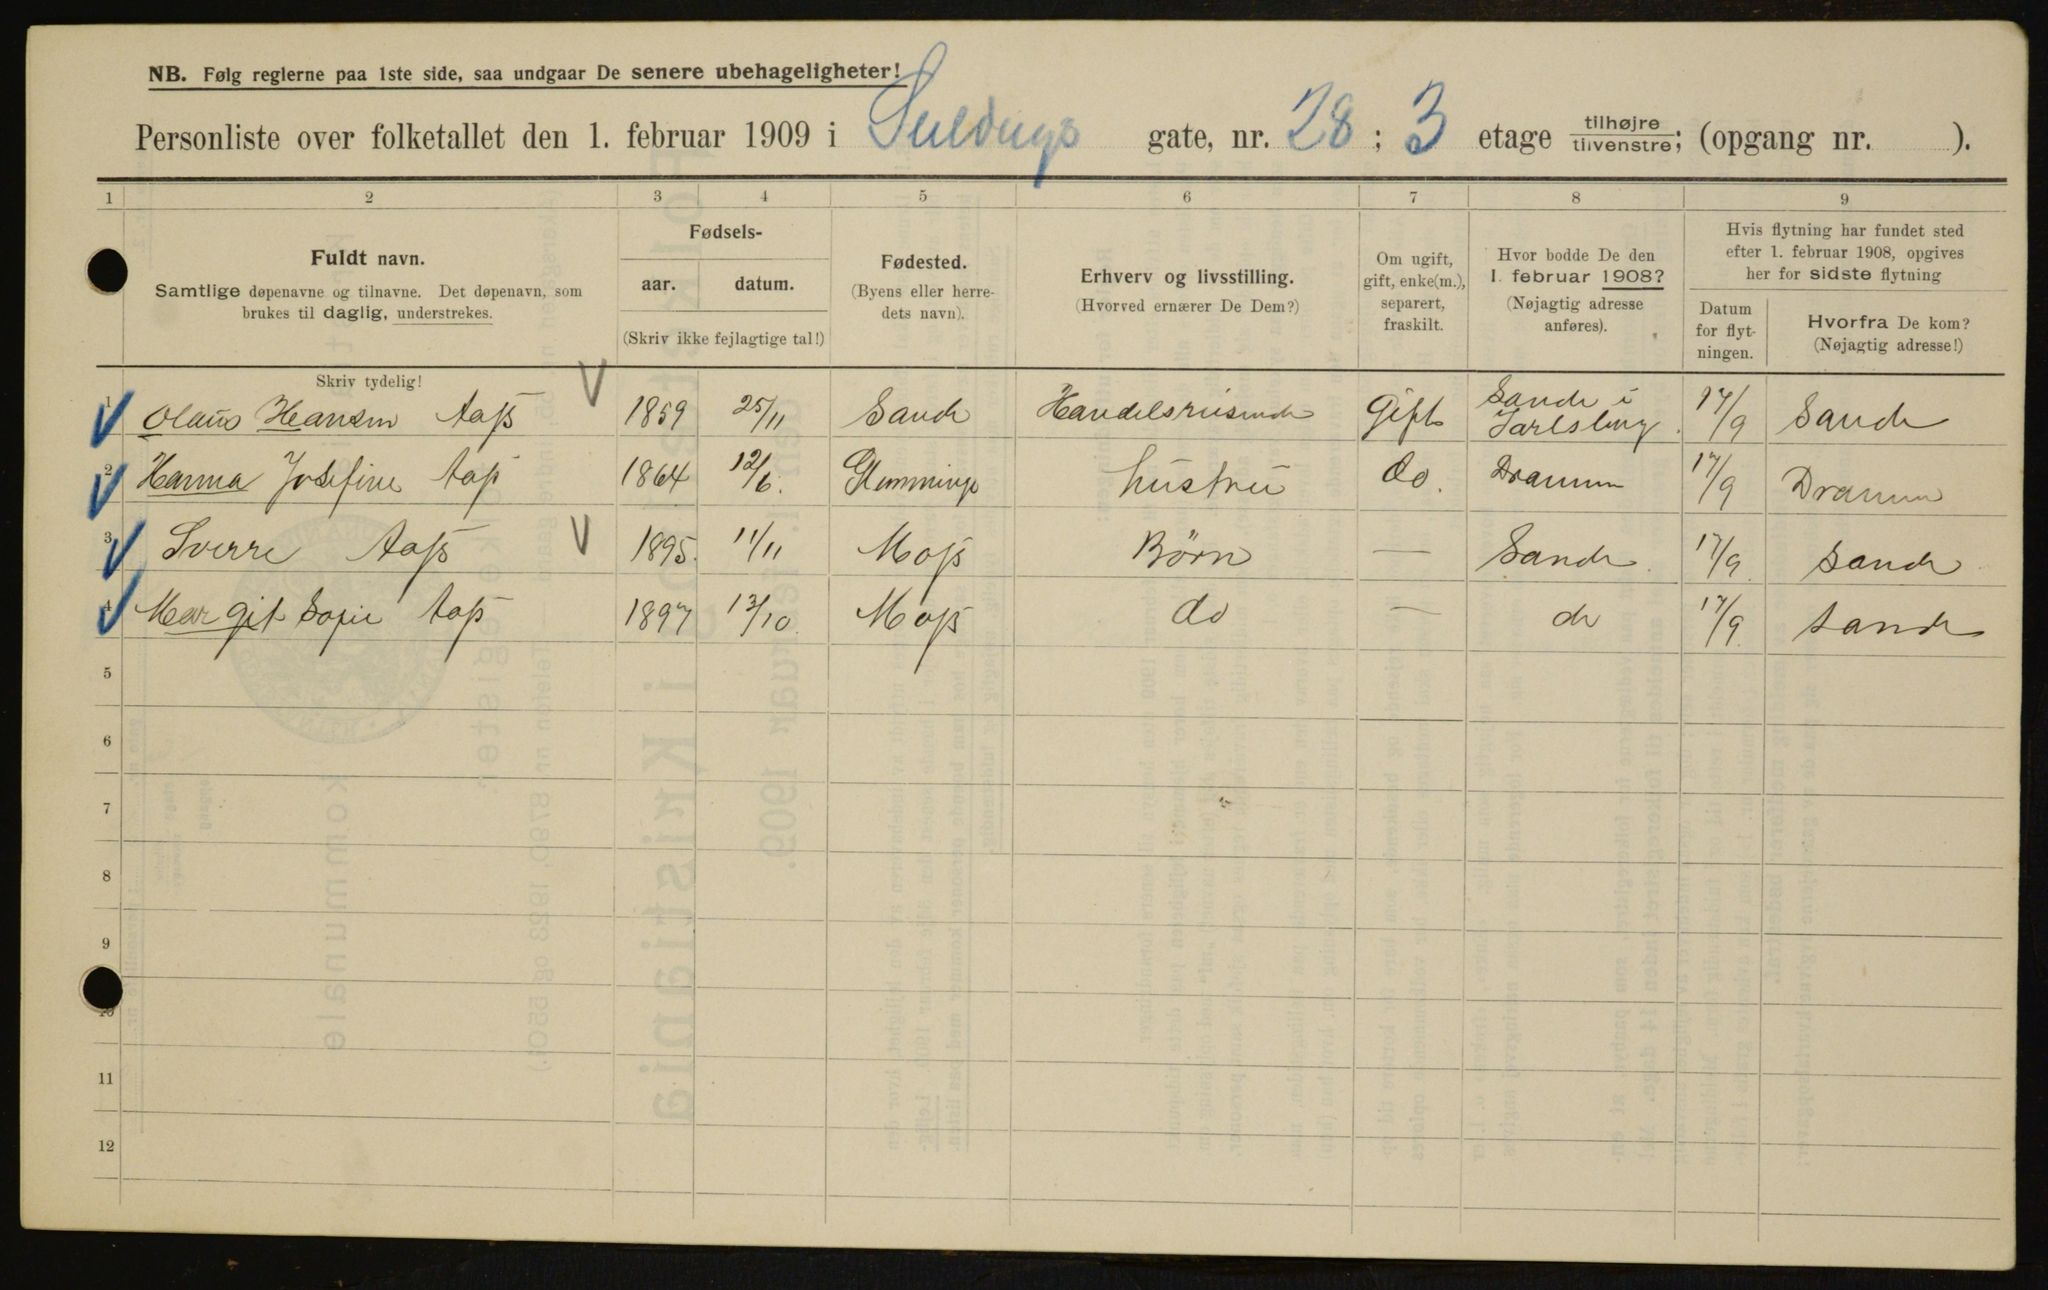 NB. Følg reglerne paa 1ste side, saa undgaar De senere ubehageligheter!
Personliste over folketallet den 1. februar 1909 i gate, nr. 28; 3 etage tilhøjre tilvenstre; (opgang nr. ).
1 2 3 4 5 6 7 8 9
Fuldt navn.
Samtlige døpenavne og tilnavne. Det døpenavn, som
brukes til daglig, understrekes.
Skriv tydelig!
Fødsels-
aar. datum.
(Skriv ikke fejlagtige tal!)
Fødested.
(Byens eller herre-
dets navn).
Erhverv og livsstilling.
(Hvorved ernærer De Dem?)
Om ugift,
gift, enke(m.),
separert,
fraskilt.
Hvor bodde De den
1. februar 1908?
(Nøjagtig adresse
anføres).
Hvis flytning har fundet sted
efter 1. februar 1908, opgives
her for sidste flytning
Datum
for flyt-
ningen.
Hvorfra De kom?
(Nøjagtig adresse!)
1 Olaus Hansen Aass 1859 25/11 Sande Handelsreisende Gift Sande i Jarlsberg 17/9 Sande
2 Hanna Josefine Aass 1864 12/6. Glemminge hustru do. Drammen 17/9 Drammen
3 Sverre Aass 1895. 11/11 Moss Børn — Sande 17/9. Sande
4 Margit Sofie Aass 1897 13/10. Moss do — do 17/9. Sande
5
6
7
8
9
10
11
12